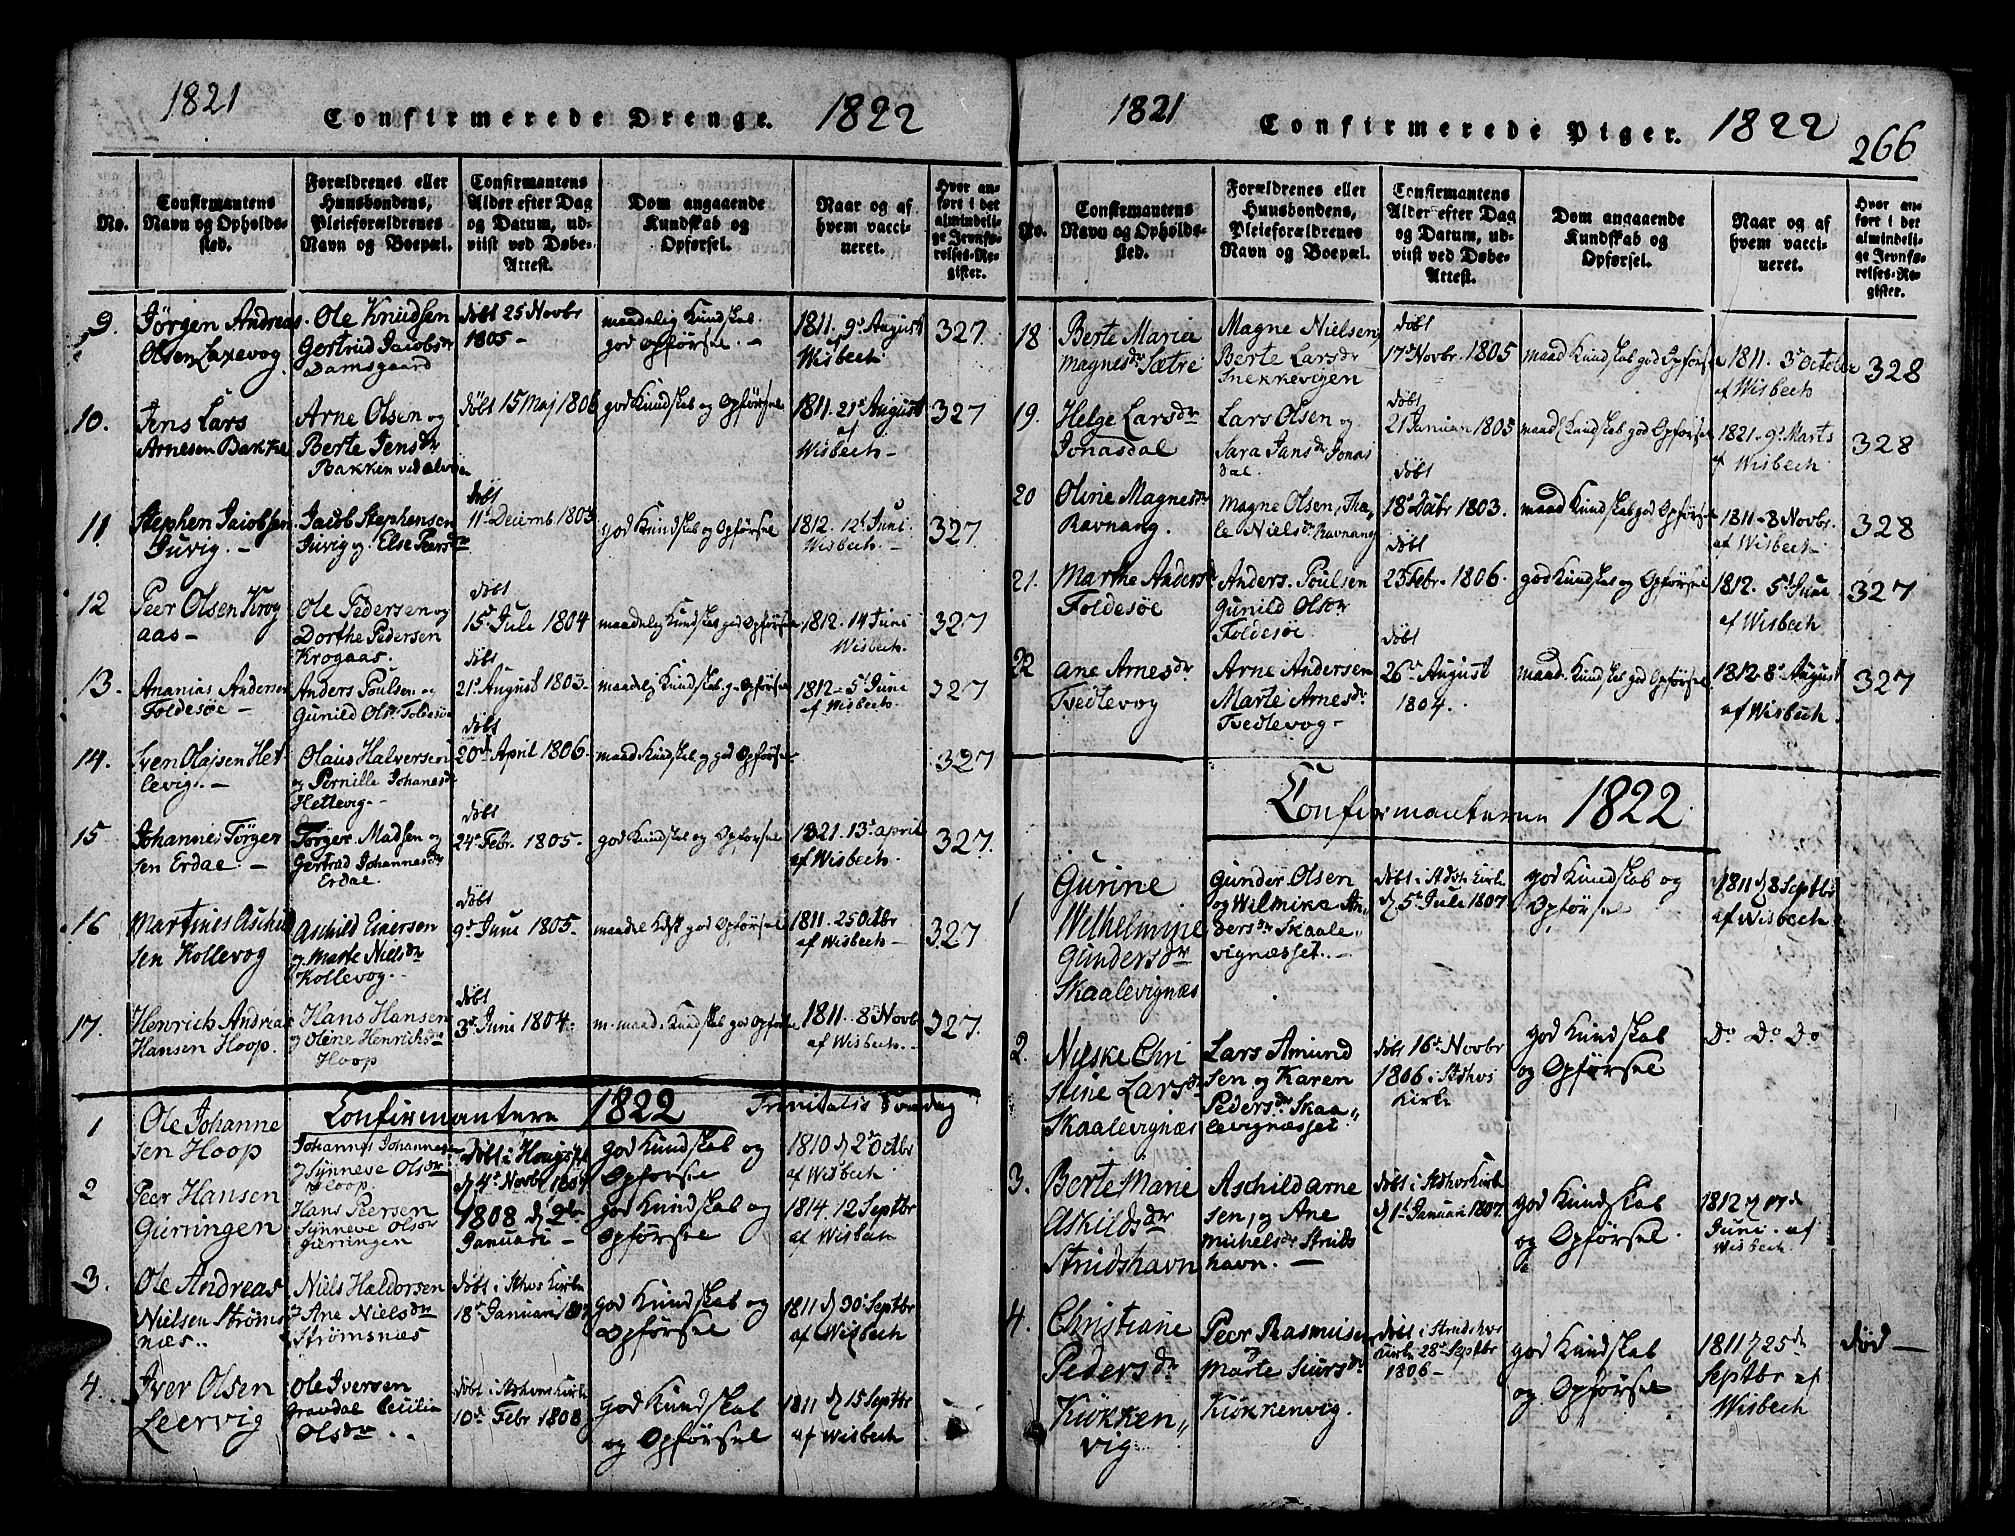 1821
Confirmerede Drenge. 1822
No.
Confirmantens Navn og Opholdssted.
Forældrenes eller Huusbondens, Pleieforældrenes Navn og Boepæl.
Confirmantens Alder efter Dag og Datum, udviist ved Døbe-Attest.
Dom angaaende Kundskab og Opførsel.
Naar og af hvem vaccineret.
Hvor anført i det almindelige Jevnførelses-Register.
9. Jørgen Andreas Olsen Laxevog
Ole Knudsen
Gertrud Jacobsdr
Damsgaard
døbt 25 Novbr
1805 -
maadelig Kundskab.
god opførsel. -
1811. 9de August
af
Wisbech
327
10. Jens Lars
Arnesen Bakke
Arne Olsen og
Berte Jensdr
Bakken ved Alv
døbt 15 Maj 1806
god Kundskab og Opførsel
1811. 21de August
af
Wisbech -
327
11. Stephen Jacobsen
Juvig. -
Jacob Stephensen
Juvig og Else Peersdr
døbt
11te Decemb 1803
god Kundskab og Opførsel
1812. 12te Juni
Wisbech. -
327
12 Peer Olsen Krog
aas -
Ole Pedersen og
Dorthe Pedersen
Krogaas.
døbt
15de Jule 1804
maadelig Kundskab god Opførsel
1812. 14 Juni
Wisbech.
327
13. Ananias Andersen
Foldesøe -
Anders Poulsen og
Gunild Olsdr Foldesøe
døbt
21de August 1803.
maadelig Kundskab. g. Opførsel
1812 - 5te Juni
af Wisbech.
327
14. Sven Olajsen Het-
levig. -
Olaus Halversen
og Pernille Johanesdr
Hettevig. -
døbt
20de April 1806.
maad Kundskab og god Opførsel
327
15 Johannes Tørger
sen Erdae -
Tørger Madsen og
Gertrud Johannesdr
Erdal.
døbt
24de Febr. 1805.
god Kundskab og Opførsel
1821. 13de april
af Wisbech.
327.
16 Martinus Aschild
sen Kollevog
Aschild Einersen
og Marte Nielsdr
Kollevog. -
døbt
9de June 1805.
maadel Kdsk god Opførsel
1811. 25 Octbr
af Wisbech -
327
17. Henrich Andreas
Hansen Hoop.
Hans Hansen
og Oline Henrichsdr
Hoop
døbt
3de Juni 1804.
m. maad. Kundskab god Opførsel
1811. 8 Novbr
af Wisbech. -
327.
Confirmantere 1822 Trinitatis Sondag
1 Ole Johanne
sen Hoop
Johannes Johannes
Synneve Olsdr
Hoop.
døbt i
4de Novbr 1807
god Kundskab og
Opførsel
1810 d 2de Octbr
af Wisbech
2 Peer Hansen
Gierringen
Hans Peersen
Synneve Olsdr
Gierringen
1808 d 2den
Januari -
god Kundskab og
Opførsel
1814. 12 Septbr
af Wisbech
3. Ole Andreas
Nielsen Strøms
næs..
Niels Haldorsen
og Ane Nielsdr
Strømsnæs
døbt i Kirke
18de Januari 1807
god Kundskab og
Opførsel
1811 d 30 Septbr
af Wisbech
4. Iver Olsen
Leervig
Ole Iversen
Gravdal Cecilia
Olsdr..
døbt i Kirke
10de Febr 1808
god Kundskab
og Opførsel
1811 d 15 Septbr
af Wisbech
1821
Confirmerede Piger. 1822
266
No.
Confirmantens Navn og Opholdssted.
Forældrenes eller Huusbondens, Pleieforældrenes Navn og Boepæl.
Confirmantens Alder efter Dag og Datum, udviist ved Døbe-Attest.
Dom angaaende Kundskab og Opførsel.
Naar og af hvem vaccineret.
Hvor anført i det almindelige Jevnførelses-Register.
18 Berte Maria
Magnesdr Sætre
Magne Nielsen
Berte Larsdr
Snekkevigen
døbt
17de Novbr. 1805
maad Kundskab god Opførsel
1811. 3de October
af Wisbech
328
19. Helge Larsdr
Jonasdal
Lars Olsen og
Sara Jansdr Jonas
dal.
døbt
21 Januari 1805
maad Kundskab god Opførsel
1821. 9de Marts
af Wisbech
328
20 Oline Magnesdr
Ravnang.
Magne Olsen, Tha
le Nielsdr Ravnang
døbt
18de Dcbr 1803.
maad Kundskab god Opførsel
1811 - 8 Novbr.
af Wisbech
328
21. Marthe Andersdr
Foldesøe
Anders. Poulsen
Gunild Olsdr
Foldesøe
døbt
23 Febr. 1806.
god Kundskab og Opførsel
1812. 5te June
af Wisbech
327
22 Ane Arnesdr
Tvedtevog
Arne Andersen
Marte Arnesdr
Tvedtevog -
døbt
26de August
1804.
maad. Kundskab god Opførsel
1812. 8de August
af Wisbech.
327
Confirmanterne 1822
1 Gurine
Wilhelmine
Gundersdr
Skaalevignæs
Gunder Olsen
og Wilmike An
dersdr Skaale„
vignæsset. -
døbt i Kirke
d 5te Jule 1807
god Kundskab og
Opførsel
1811 d 8 Septbr
af Wisbech
2. Nilske Chri
stine Larsdr
Skaalevignæs
Lars Amund
sen og Karen
Pedersdr Skaa„
levignæsset.
døbt 16de Novbr
1806 i
Kirke
god Kundskab
og Opførsel
Do Do Do
3. Berte Marie
Askildsdr
Strudshavn
Aschild Arne
sen, og Ane
Michelsdr Struds
havn. -
døbt i Kirke
d 1te Januari 1807.
god Kundskab
og Opførsel.
1812
Juni. af
Wisbech
4. Christiane
Pedersdr
Kiøkken„
vig
Peer Rasmusen
og
Marte Siursdr
Kiøkkenvig.
døbt i
Kirke 28de Septbr
1806 -
god Kundskab
og Opførsel
1811 25de
Septbr af
Wisbech
død -